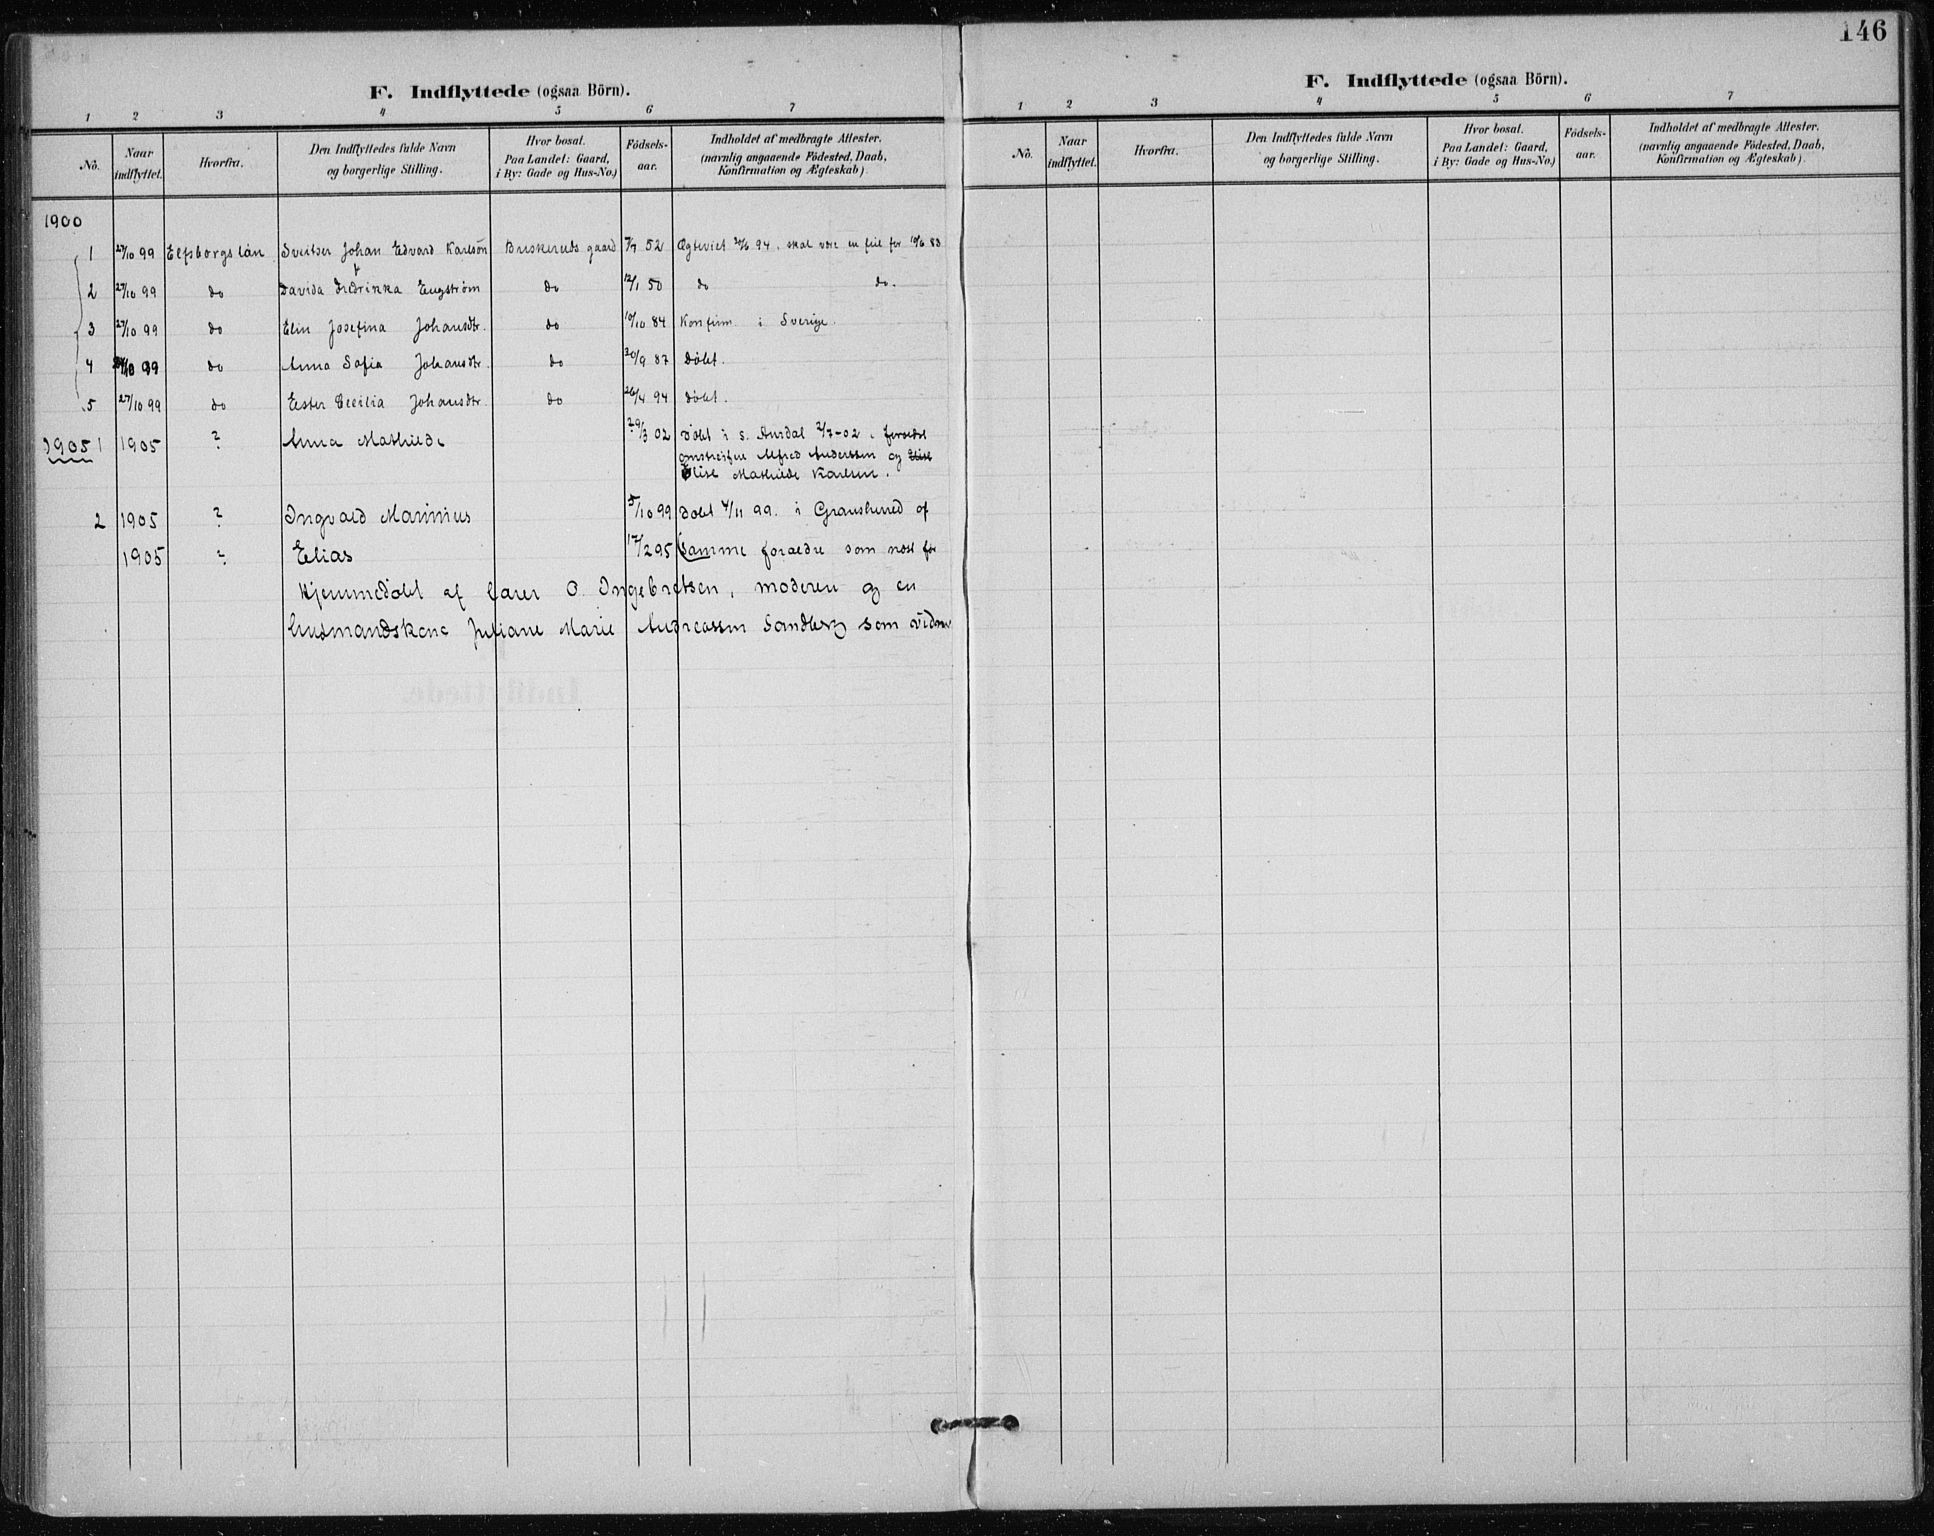 146
F. Indflyttede (ogsaa Börn).
1 2 3 4 5 6 7
No. Naar indflyttet. Hvorfra. Den Indflyttedes fulde Navn og borgerlige Stilling. Hvor bosat. Paa Landet: Gaard, i By: Gade og Hus-No.) Födsels-aar. Indholdet af medbragte Attester. (navnlig angaaende Födested, Daab, Konfirmation og Ægteskab)
1900
1 27/10 99 Elfsborgs län Sveitser Johan Edvard Karlsön Buskeruds gaard 7/7 52 Ægteviet 24/6 94. skal være en feil for 10/6 83
2 27/10 99 do Davida Fredrikka Engström do 12/1 50 do do.
3 27/10 99 do Elin Josefina Johansdtr. do 10/10 84 Konfirm. i Sverige.
4 27/10 99 do Anna Sofia Johansdtr. do 20/9 87 Döbt.
5 27/10 99 do Ester Cecilia Johansdtr. do 26/4 94 döbt.
1905 1 1905 ? Anna Mathilde 29/3 02 Döbt i S. Aurdal 2/7-02. foræld.
omstreifere Alfred Anderssen og Elise
Elise Mathilde Karlsen.
2 1905 ? Ingvald Marinius 5/10 99 Döbt 4/11 99. i Gransherred af
1905 ? Elias 17/2 95 Samme foraeldre som næst før
Hjemmedöbt af Carer O. Ingebretsen, moderen og en
husmandskone Juliane Marie Andreassen Sandberg som vidner
F. Indflyttede (ogsaa Börn).
1 2 3 4 5 6 7
No. Naar indflyttet. Hvorfra. Den Indflyttedes fulde Navn og borgerlige Stilling. Hvor bosat. Paa Landet: Gaard, i By: Gade og Hus-No.) Födsels-aar. Indholdet af medbragte Attester. (navnlig angaaende Födested, Daab, Konfirmation og Ægteskab)